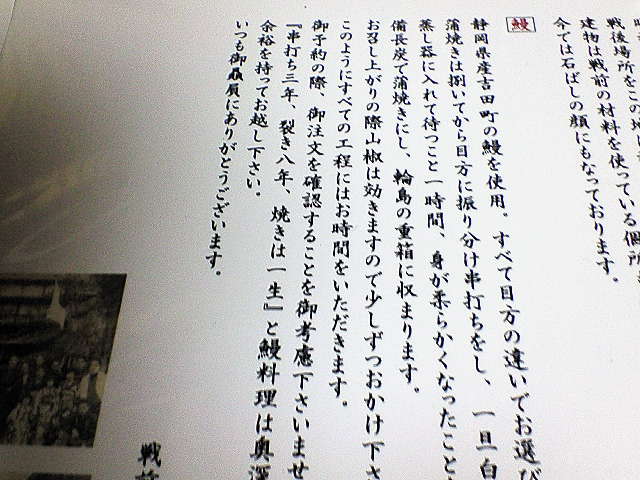 戦後場所をこの地に
建物は戦前の材料を使っている個所
今では石ばしの顔にもなっております。
鰻
静岡県産吉田町の鰻を使用。すべて目方の違いでお選び
蒲焼きは捌いてから目方に振り分け串打ちをし、一旦白
蒸し器に入れて待つこと一時間、身が柔らかくなったこと
備長炭で蒲焼きにし、輪島の重箱に収まります。
お召し上がりの際山椒は効きますので少しずつおかけ下さ
このようにすべての工程にはお時間をいただきます。
御予約の際、御注文を確認することを御考慮下さいませ
『串打ち三年、裂き八年、焼きは一生』と鰻料理は奥深
余裕を持ってお越し下さい。
いつも御贔屓にありがとうございます。
戦前